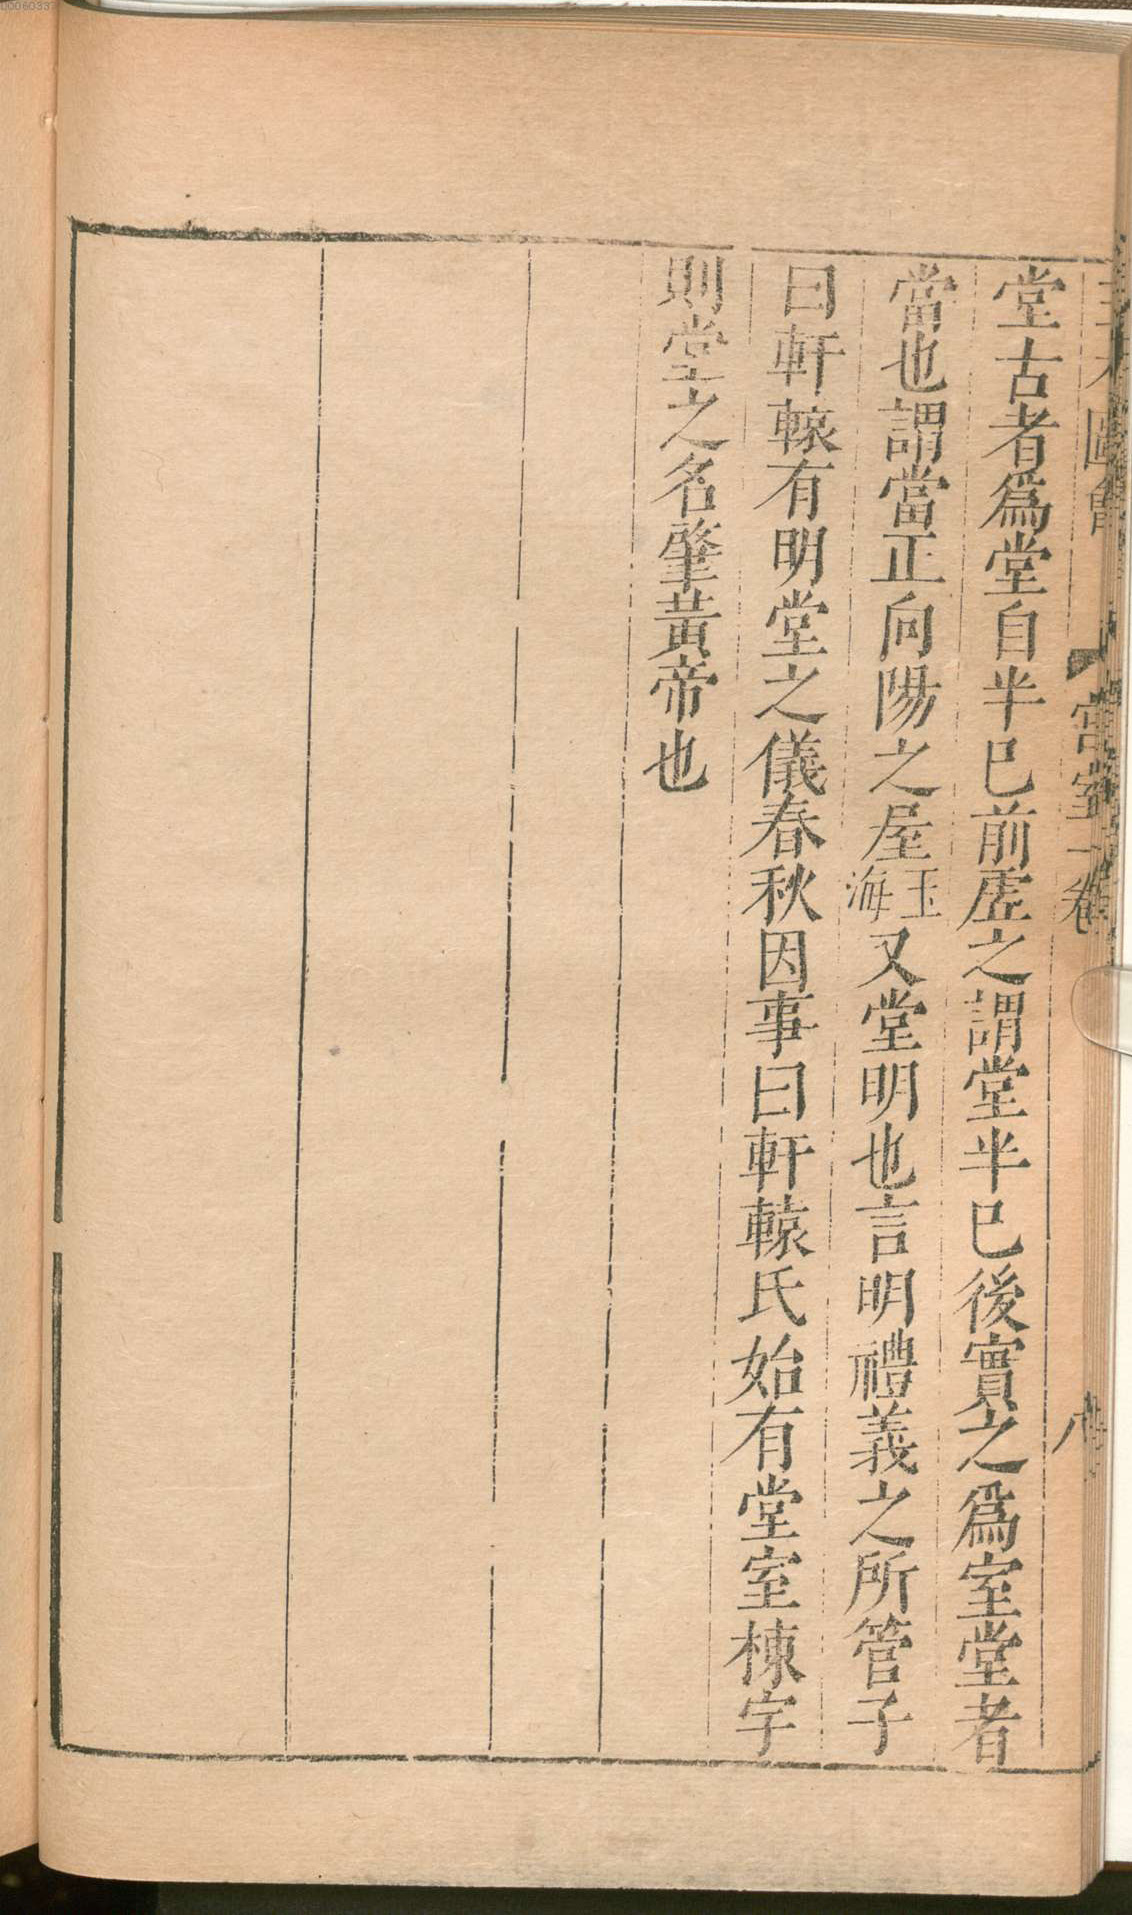 堂古者爲堂自半已前虛之謂堂半已後實之爲室堂者
當也謂當正向陽之屋玉海又堂明也言明禮義之所管子
曰軒轅有明堂之儀春秋因事曰軒轅氏始有堂室棟宇
則堂之名肇黃帝也
宮室一卷
八
0006033